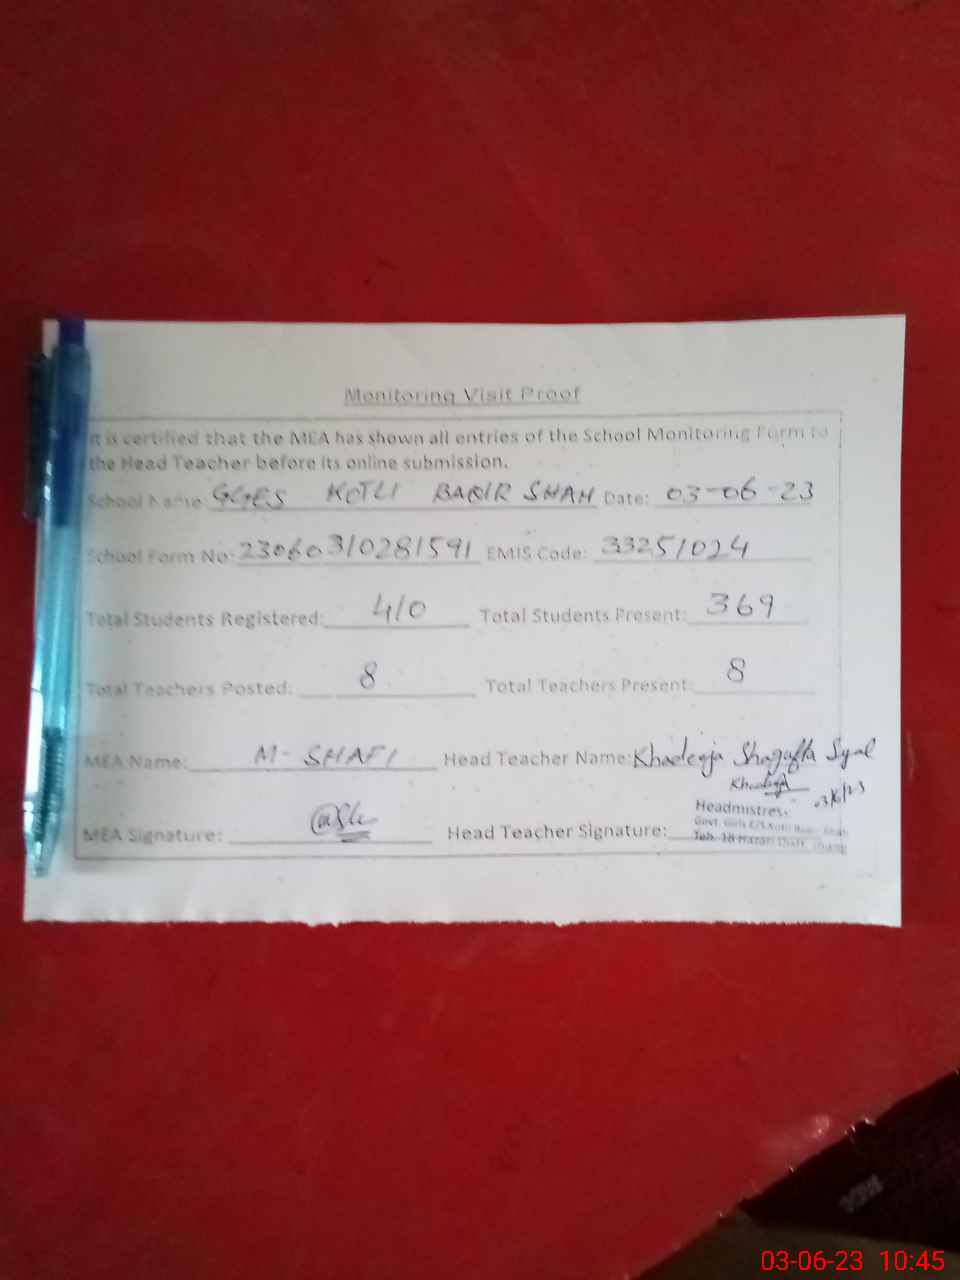 Monitoring Visit Proof
It is certified that the MEA has shown all entries of the School Monitoring Form to
the Head Teacher before its online submission.
School Name: GGES KOTLI BAQIR SHAH Date: 03-06-23
School Form No: 23060310281591 EMIS Code: 33251024
Total Students Registered: 410 Total Students Present: 369
Total Teachers Posted: 8 Total Teachers Present: 8
MEA Name: M- SHAFI Head Teacher Name: Khadeeja Shagufta Syal
MEA Signature: Head Teacher Signature:
Khadeeja
03/6/23
Headmistress
Govt. Girls E/S Kotli Baqir Shah
Teh. 18-Hazari Distt. Jhang
03-06-23 10:45